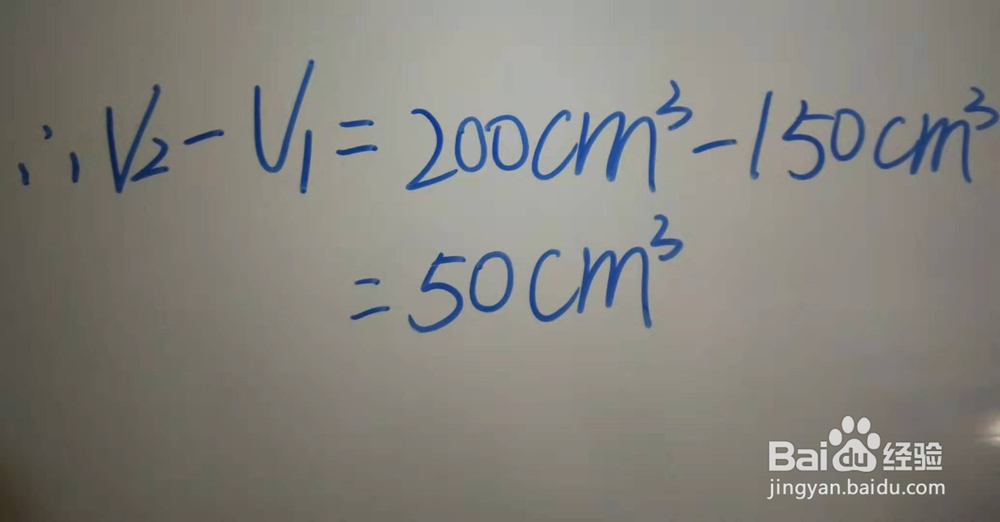 ∴V₂-V₁=200cm³-150cm³
=50cm³
Baidu经验
jingyan.baidu.com